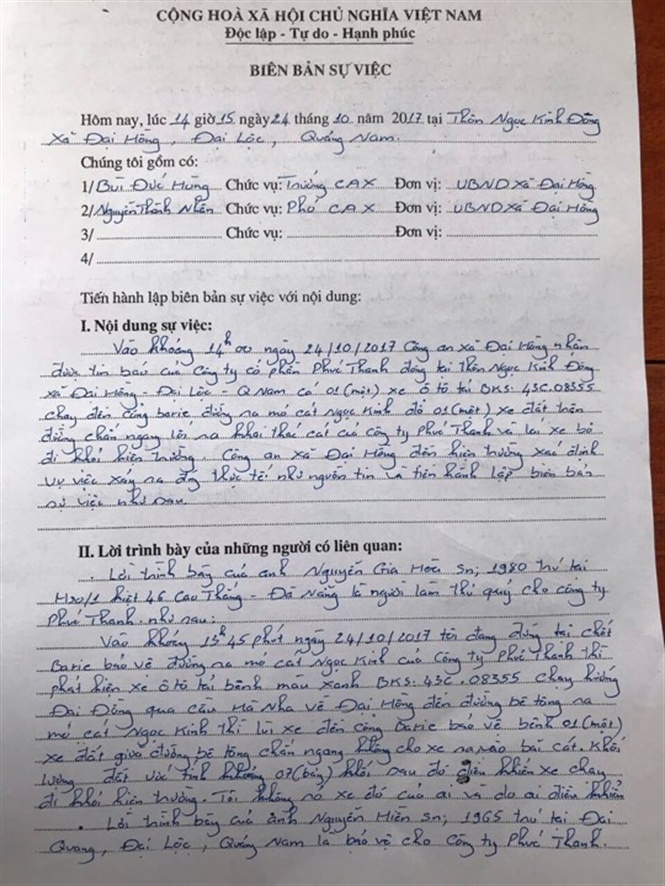 CỘNG HOÀ XÃ HỘI CHỦ NGHĨA VIỆT NAM
Độc lập - Tự do - Hạnh phúc
BIÊN BẢN SỰ VIỆC
Hôm nay, lúc 14 giờ 15 ngày 24 tháng 10 năm 2017 tại Thôn Ngọc Kinh Đông
Xã Đại Hồng, Đại Lộc, Quảng Nam.
Chúng tôi gồm có:
1/ Bùi Đức Hùng Chức vụ: Trưởng CAX Đơn vị: UBND xã Đại Hồng
2/ Nguyễn Thành Nhân Chức vụ: Phó CAX Đơn vị: UBND xã Đại Hồng
3/ Chức vụ: Đơn vị:
4/
Tiến hành lập biên bản sự việc với nội dung:
I. Nội dung sự việc:
Vào khoảng 14h00 ngày 24/10/2017 Công an xã Đại Hồng nhận
được tin báo của Công ty cổ phần Phước Thanh đóng tại thôn Ngọc Kinh Đông
xã Đại Hồng - Đại Lộc - Q Nam có 01 (một) xe ô tô tải BKS: 43C.08355
chạy đến cổng barie đường ra mỏ cát Ngọc Kinh đổ 01 (một) xe đất trên
đường chắn ngay lối ra khai thác cát của Công ty Phước Thanh và lái xe bỏ
đi khỏi hiện trường. Công an xã Đại Hồng đến hiện trường xác định
vụ việc xảy ra đúng thực tế như nguồn tin và tiến hành lập biên bản
sự việc như sau.
II. Lời trình bày của những người có liên quan:
. Lời trình bày của anh Nguyễn Gia Hoà sn; 1980 trú tại
H30/1 kiệt 46 Cao Thắng - Đà Nẵng là người làm thủ quỹ cho công ty
Phước Thanh như sau:
Vào khoảng 13h45 phút ngày 24/10/2017 tôi đang đứng tại chốt
Barie bảo vệ đường ra mỏ cát Ngọc Kinh của Công ty Phước Thanh thì
phát hiện xe ô tô tải bênh màu xanh BKS: 43C.08355 chạy hướng
Đại Đồng qua cầu Hà Nha về Đại Hồng đến đường bê tông ra
mỏ cát Ngọc Kinh thì lùi xe đến cổng barie bảo vệ bênh 01 (một)
xe đất giữa đường bê tông chắn ngang không cho xe ra vào bãi cát. Khối
lượng đất ước tính khoảng 07 (bảy) khối sau đó điều khiển xe chạy
đi khỏi hiện trường. Tôi không rõ xe đó của ai và do ai điều khiển
. Lời trình bày của anh Nguyễn Hiền sn; 1965 trú tại Đại
Quang, Đại Lộc, Quảng Nam là bảo vệ cho Công ty Phước Thanh.